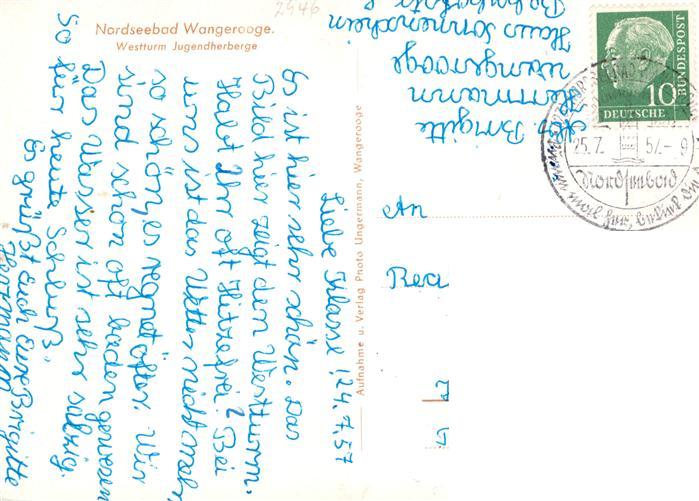 2946
Nordseebad Wangerooge.
Westturm Jugendherberge
Liebe Klasse! 24.7.57
Es ist hier sehr schön. Das
Bild hier zeigt den Westturm.
Habt Ihr oft Hitzefrei? Bei
uns ist das Wetter nicht mehr
so schön, es regnet öfter. Wir
sind schon oft baden gewesen
Das Wasser ist sehr salzig.
So für heute Schluß.
Es grüßt Euch eure Brigitte
Herrmann
Aufnahme u. Verlag Photo Ungermann, Wangerooge
Abs. Brigitte
Herrmann
Wangerooge
Haus Sonnenschein
An
Rea
DEUTSCHE BUNDESPOST
10
25.7. 57.-9
Nordseebad